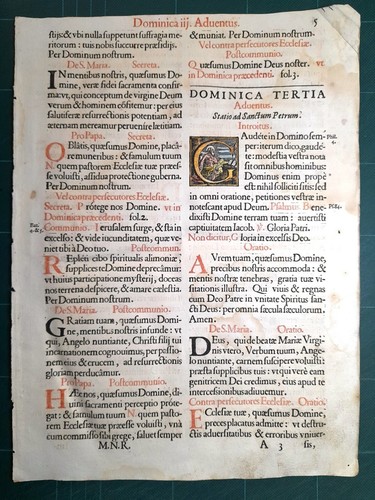 Dominica iij. Aduentus. 5
stijs: & vbi nulla suppetunt suffragia me-
ritorum: tuis nobis succurre præsidijs.
Per Dominum nostrum.
De S. Maria. Secreta.
IN mentibus nostris, quæsumus Do-
mine, veræ fidei sacramenta confir-
ma: vt, qui conceptum de virgine Deum
verum & hominem cõfitemur: per eius
salutiferæ resurrectionis potentiam, ad
æternam mereamur peruenire lætitiam.
Pro Papa. Secreta.
OBlatis, quæsumus Domine, placâ-
re muneribus: & famulum tuum
N. quem pastorem Ecclesiæ tuæ præes-
se voluisti, assidua protectione guberna.
Per Dominum nostrum.
Vel contra persecutores Ecclesiæ.
Secreta. Protege nos Domine. vt in
Dominica præcedenti. fol. 2.
Communio. Ierusalem surge, & sta in
excelso: & vide iucunditatem, quæ ve-
niet tibi à Deo tuo. Postcommun.
REpleti cibo spiritualis alimoniæ,
supplices te Domine deprecâmur:
vt huius participatione mysterij, doceas
nos terrena despicere, & amare cælestia.
Per Dominum nostrum.
De S. Maria. Postcommun.
GRatiam tuam, quæsumus Domi-
ne, mentibus nostris infunde: vt
qui, Angelo nuntiante, Christi filij tui
incarnationem cognouimus, per passio-
nem eius & crucem, ad resurrectionis
gloriam perducâmur.
Pro Papa. Postcommunio.
HÆc nos, quæsumus Domine, di-
uini sacramenti perceptio prote-
gat: & famulum tuum N. quem pasto-
rem Ecclesiæ tuæ præesse voluisti, vnà
cum commisso sibi grege, saluet semper
M.N.R.
& muniat. Per Dominum nostrum.
Vel contra persecutores Ecclesiæ.
Postcommunio.
Quæsumus Domine Deus noster. vt
in Dominica præcedenti. fol. 3.
DOMINICA TERTIA
Aduentus.
Statio ad Sanctum Petrum.
Introitus.
GAudéte in Domino sem-
per: iterum dico, gaudé-
te: modestia vestra nota
sit omnibus hominibus:
Dominus enim propè
est: nihil solliciti sitis: sed
in omni oratione, petitiones vestræ in-
notescant apud Deum. Psalmus. Bene-
dixisti Domine terram tuam: auertisti
captiuitatem Iacob. ℣. Gloria Patri.
Non dicitur, Gloria in excelsis Deo.
Oratio.
AVrem tuam, quæsumus Domine,
precibus nostris accommoda: &
mentis nostræ tenebras, gratia tuæ vi-
sitationis illustra. Qui viuis & regnas
cum Deo Patre in vnitate Spiritus san-
cti Deus: per omnia sæcula sæculorum.
Amen.
De S. Maria. Oratio.
DEus, qui de beatæ Mariæ Virgi-
nis vtero, Verbum tuum, Ange-
lo nuntiante, carnem suscipere voluisti:
præsta supplicibus tuis: vt qui verè eam
genitricem Dei credimus, eius apud te
intercessionibus adiuuemur.
Contra persecutores Ecclesiæ. Oratio.
EClesiæ tuæ, quæsumus Domine,
preces placatus admitte: vt destru-
ctis aduersitatibus & erroribus vniuer-
A 3 sis,